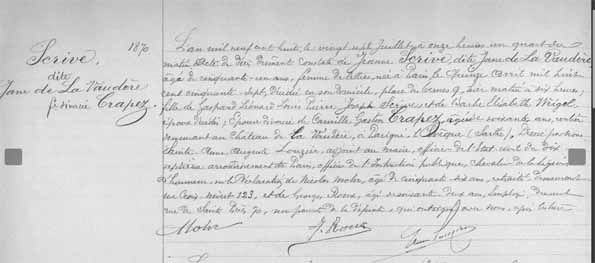 1870
Scrive,
dite
Jane de La Vaudère
f. divorcée Crapez.
L'an mil neuf cent huit, le vingt sept Juillet, à onze heures un quart du
matin. Acte de décès dûment constaté de Jeanne Scrive dite Jane de La Vaudère,
âgée de cinquante-un ans, femme de lettres, née à Paris, le quinze avril mil huit
cent cinquante sept; décédée en son domicile, place des Ternes 9, hier matin à six heures;
fille de Gaspard Léonard Louis Pierre Joseph Scrive et de Barbe Elisabeth Weigel,
époux décédés; Epouse divorcée de Camille Gaston Crapez, âgé de soixante ans, rentier
demeurant au château de La Vaudère, à Parigné l'Evêque (Sarthe). Dressé par nous
adjoint au maire, officier de l'état civil du dix
septième arrondissement de Paris, officier de l'Instruction publique, chevalier de la Légion
d'honneur, sur la déclaration de Nicolas Mohr, âgé de cinquante six ans, retraité, demeurant
rue 123, et de Georges Roux, âgé de soixante deux ans, employé, demeurant
rue de Saint 70, non parents de la défunte, qui ont signé avec nous, après lecture
Mohr G. Roux